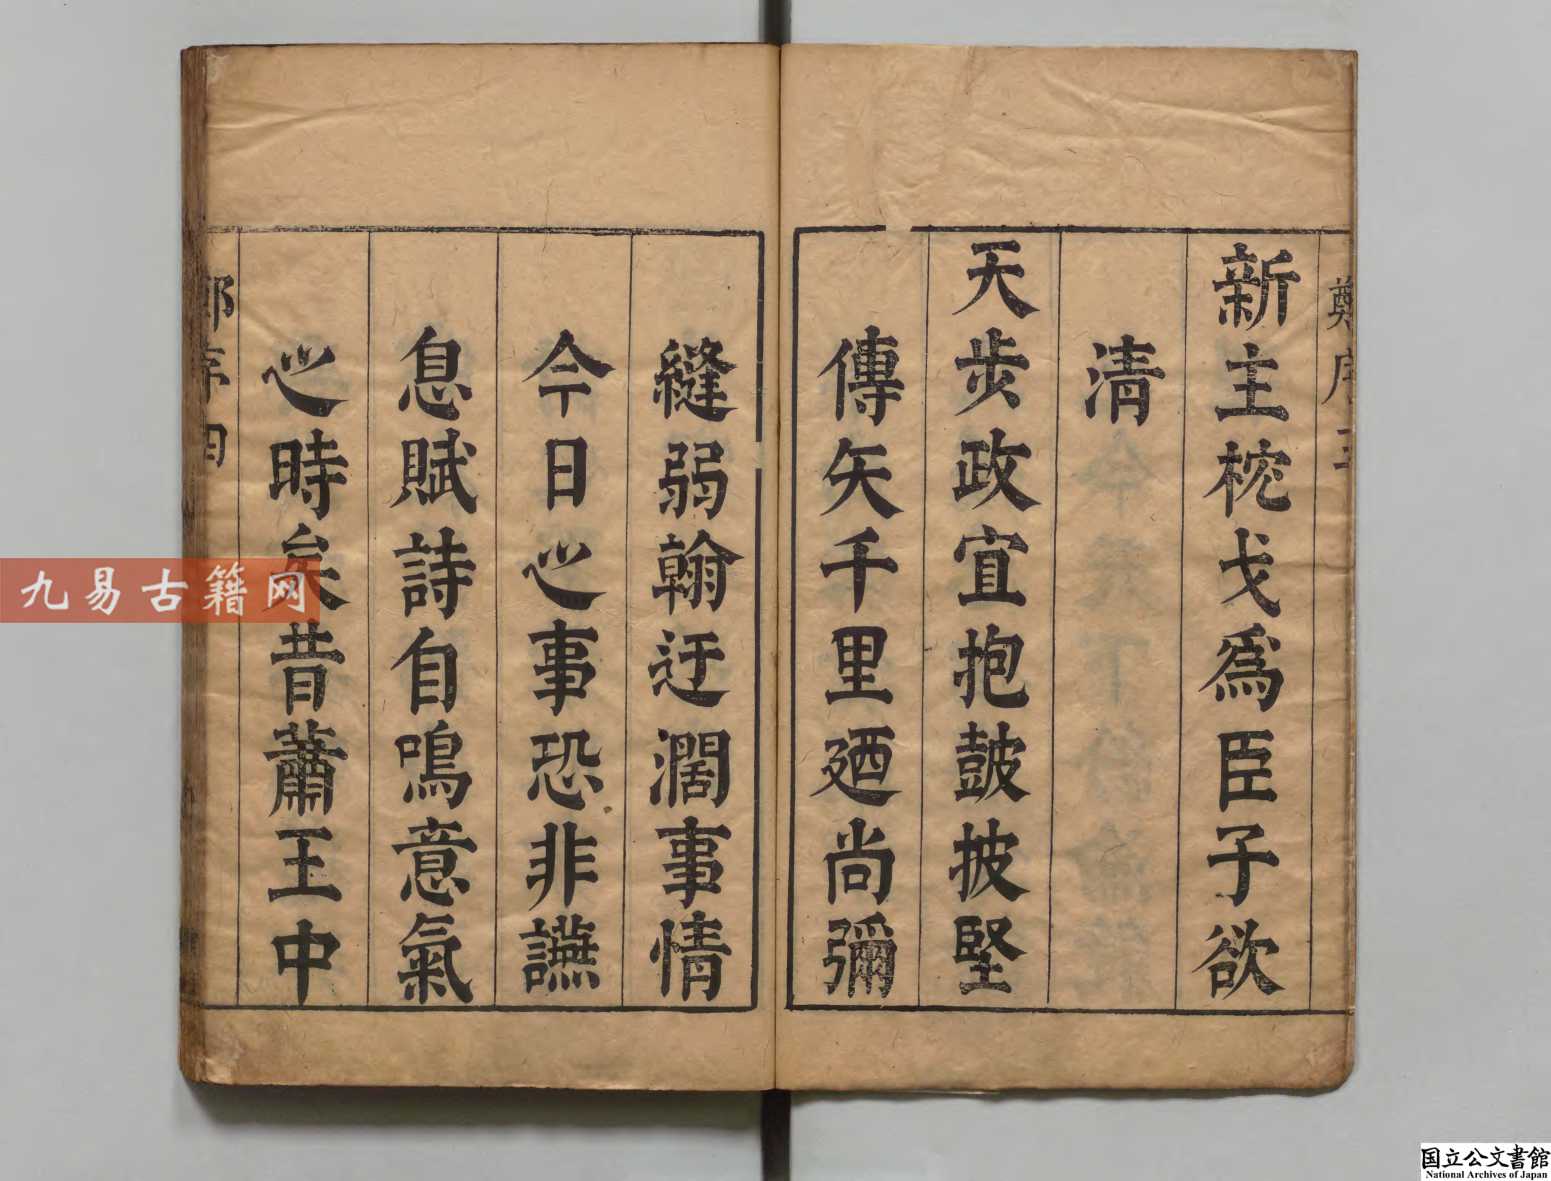 新主枕戈爲臣子欲
清
天步政宜抱鼓披堅
傳矢千里廼尚彌
縫弱翰迂濶事情
今日之事恐非讌
息賦詩自鳴意氣
之時矣昔蕭王中
鄭序四
九易古籍网
国立公文書館
National Archives of Japan